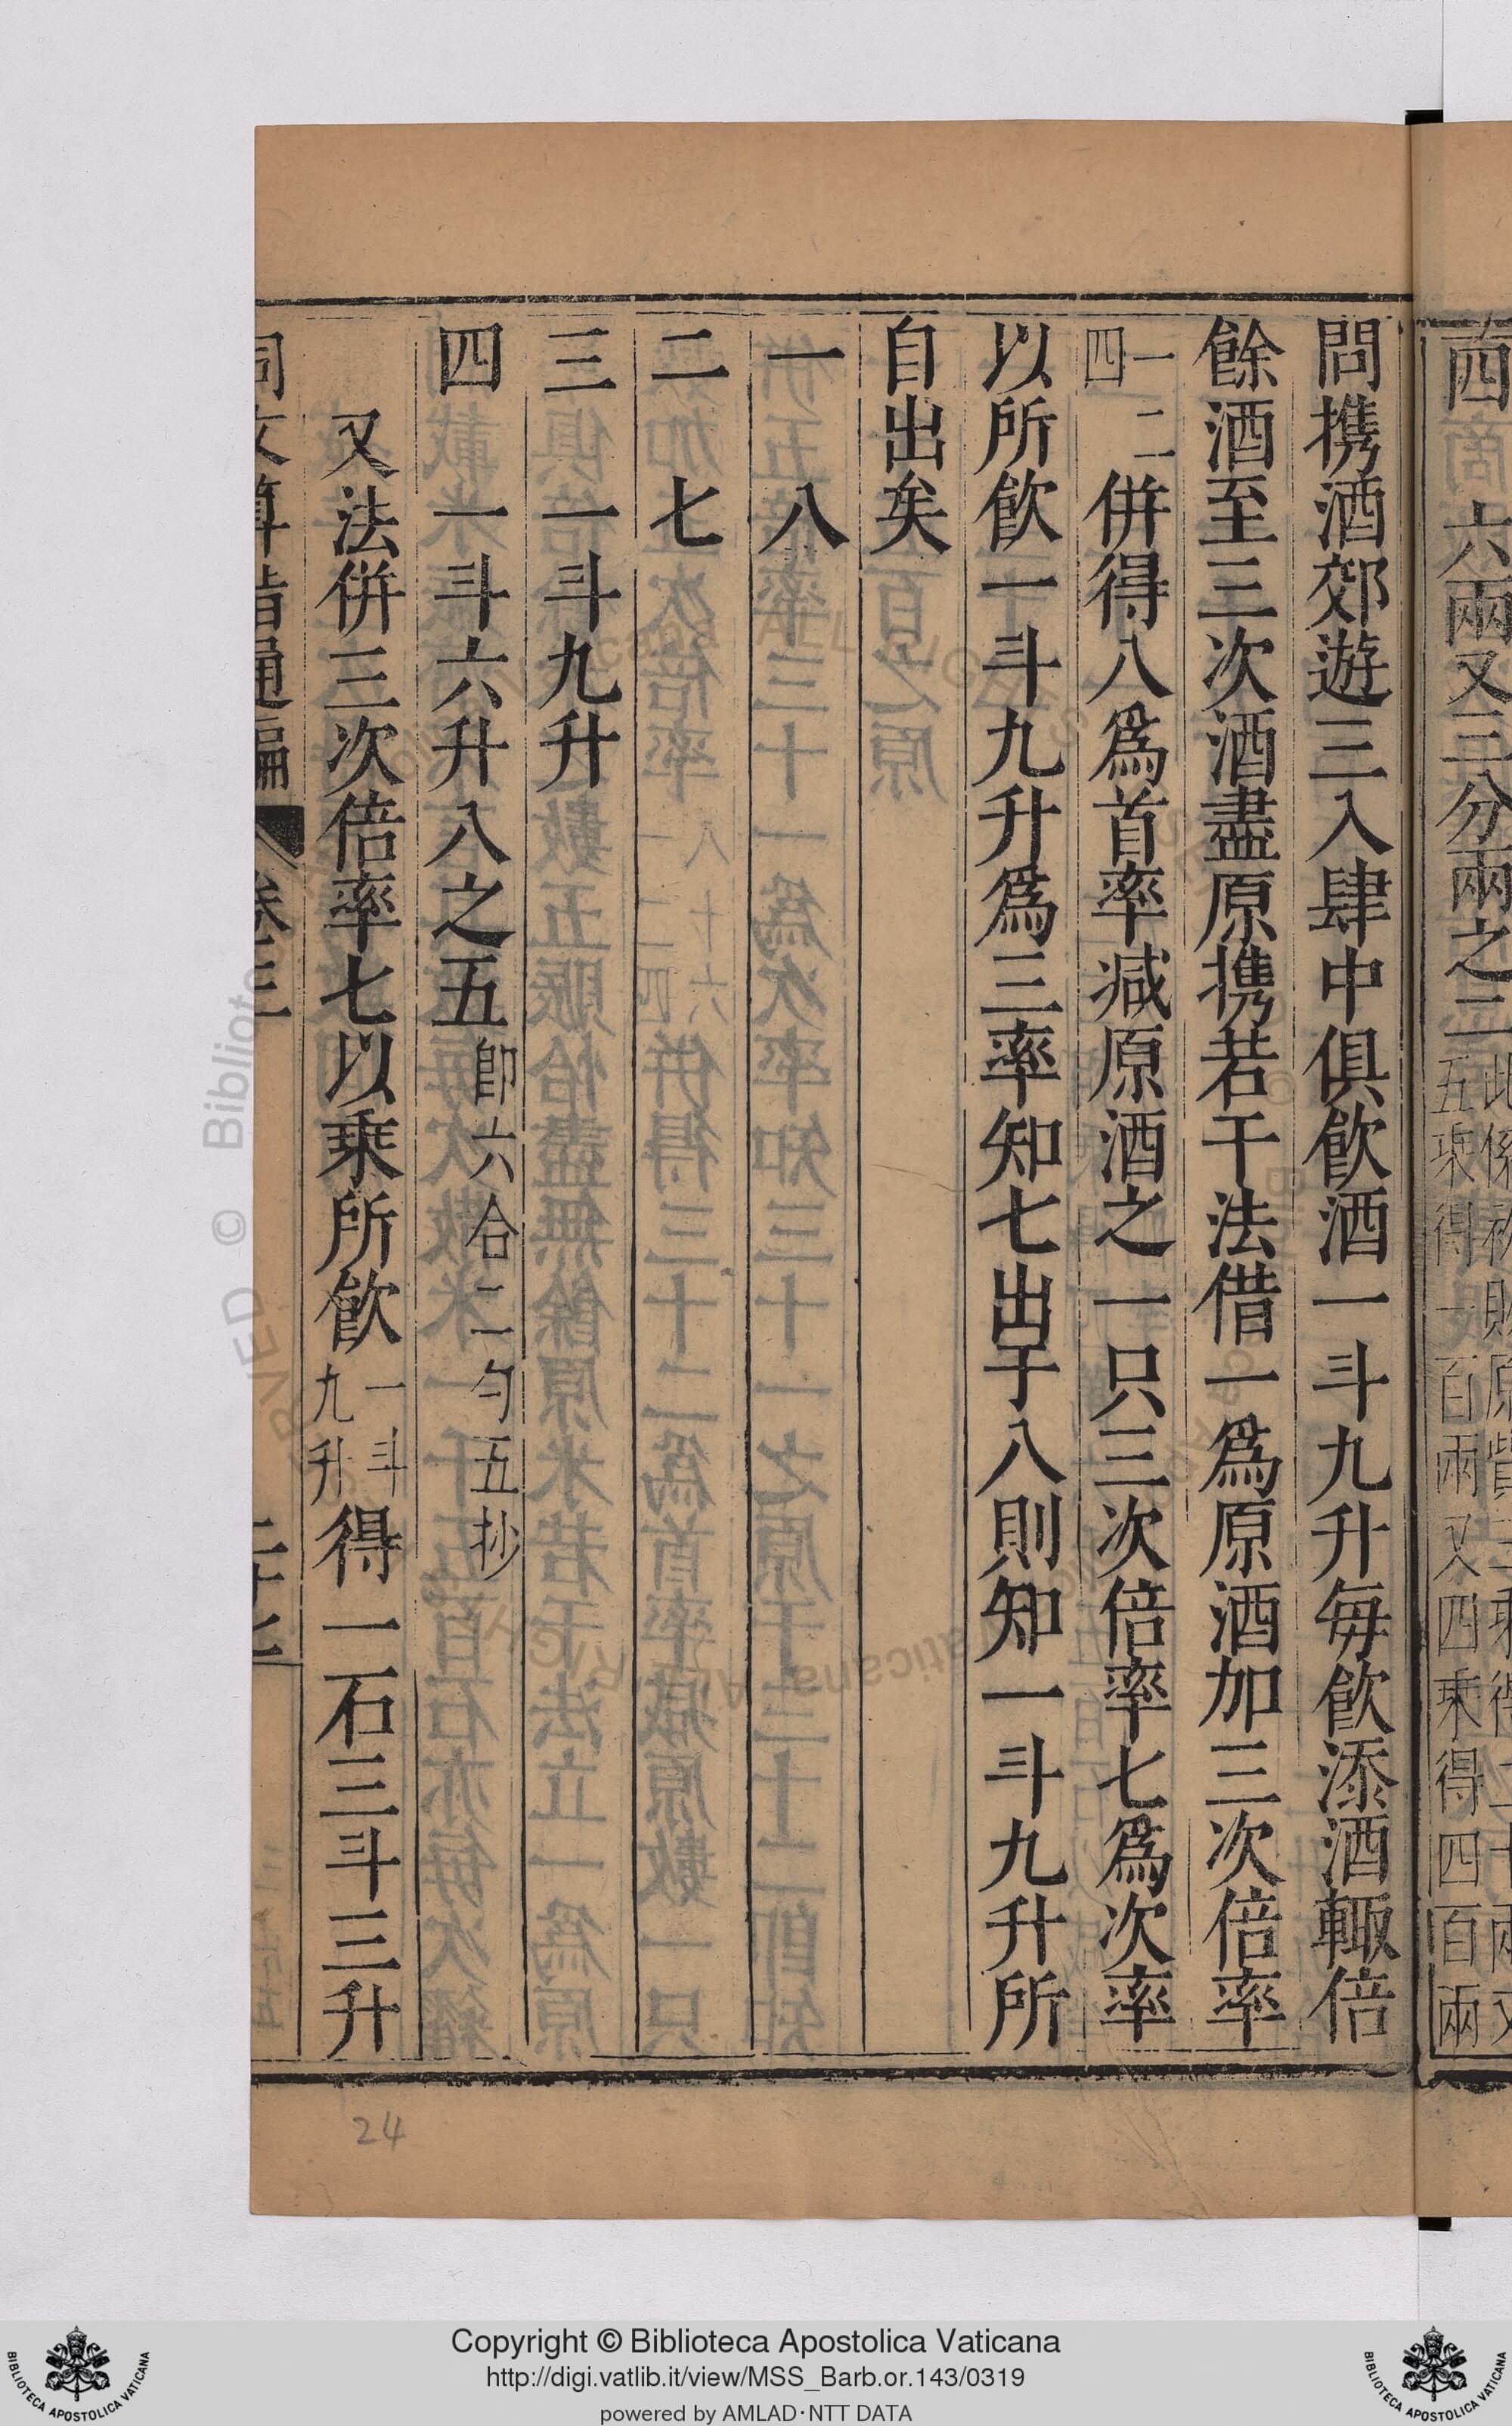 四 六兩又三分兩之二
問携酒郊遊三入肆中俱飲酒一斗九升每飲添酒輒倍
餘酒至三次酒盡原携若干法借一爲原酒加三次倍率
一二四併得八爲首率减原酒之一只三次倍率七爲次率
以所飲一斗九升爲三率知七出于八則知一斗九升所
自出矣
一 八
二 七
三 一斗九升
四 一斗六升八之五卽六合二勺五抄
又法併三次倍率七以乗所飲一斗九升得一石三斗三升
同文算指通編 卷三 二十七
24
Copyright © Biblioteca Apostolica Vaticana
http://digi.vatlib.it/view/MSS_Barb.or.143/0319
powered by AMLAD·NTT DATA
BIBLIOTECA APOSTOLICA VATICANA
BIBLIOTECA APOSTOLICA VATICANA